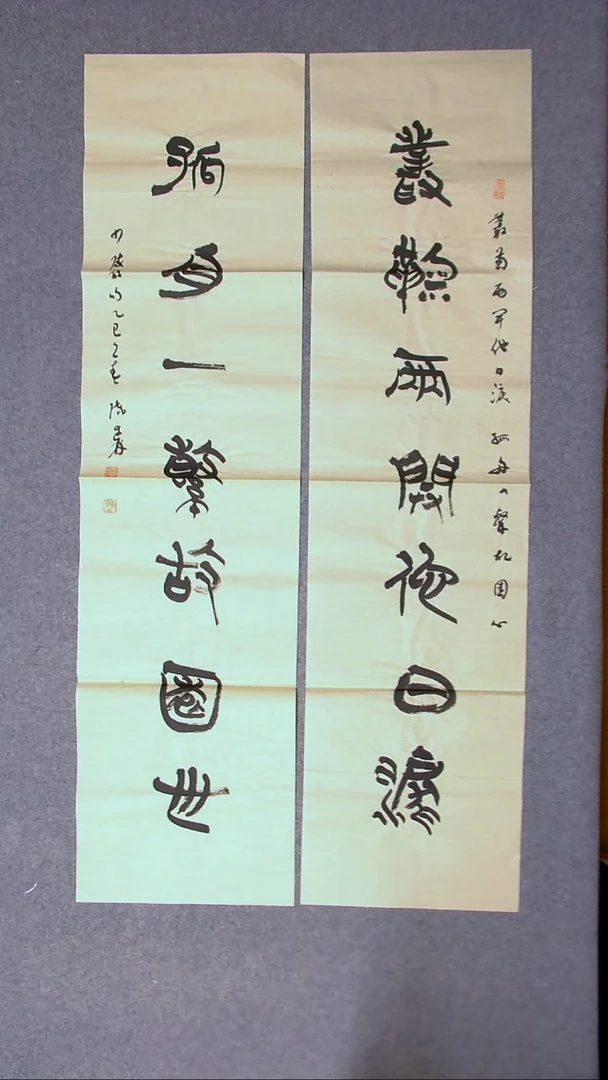 叢菊兩開他日淚 孤舟一繫故園心
叢菊兩開他日淚
孤舟一繫故園心
少陵句乙巳之春